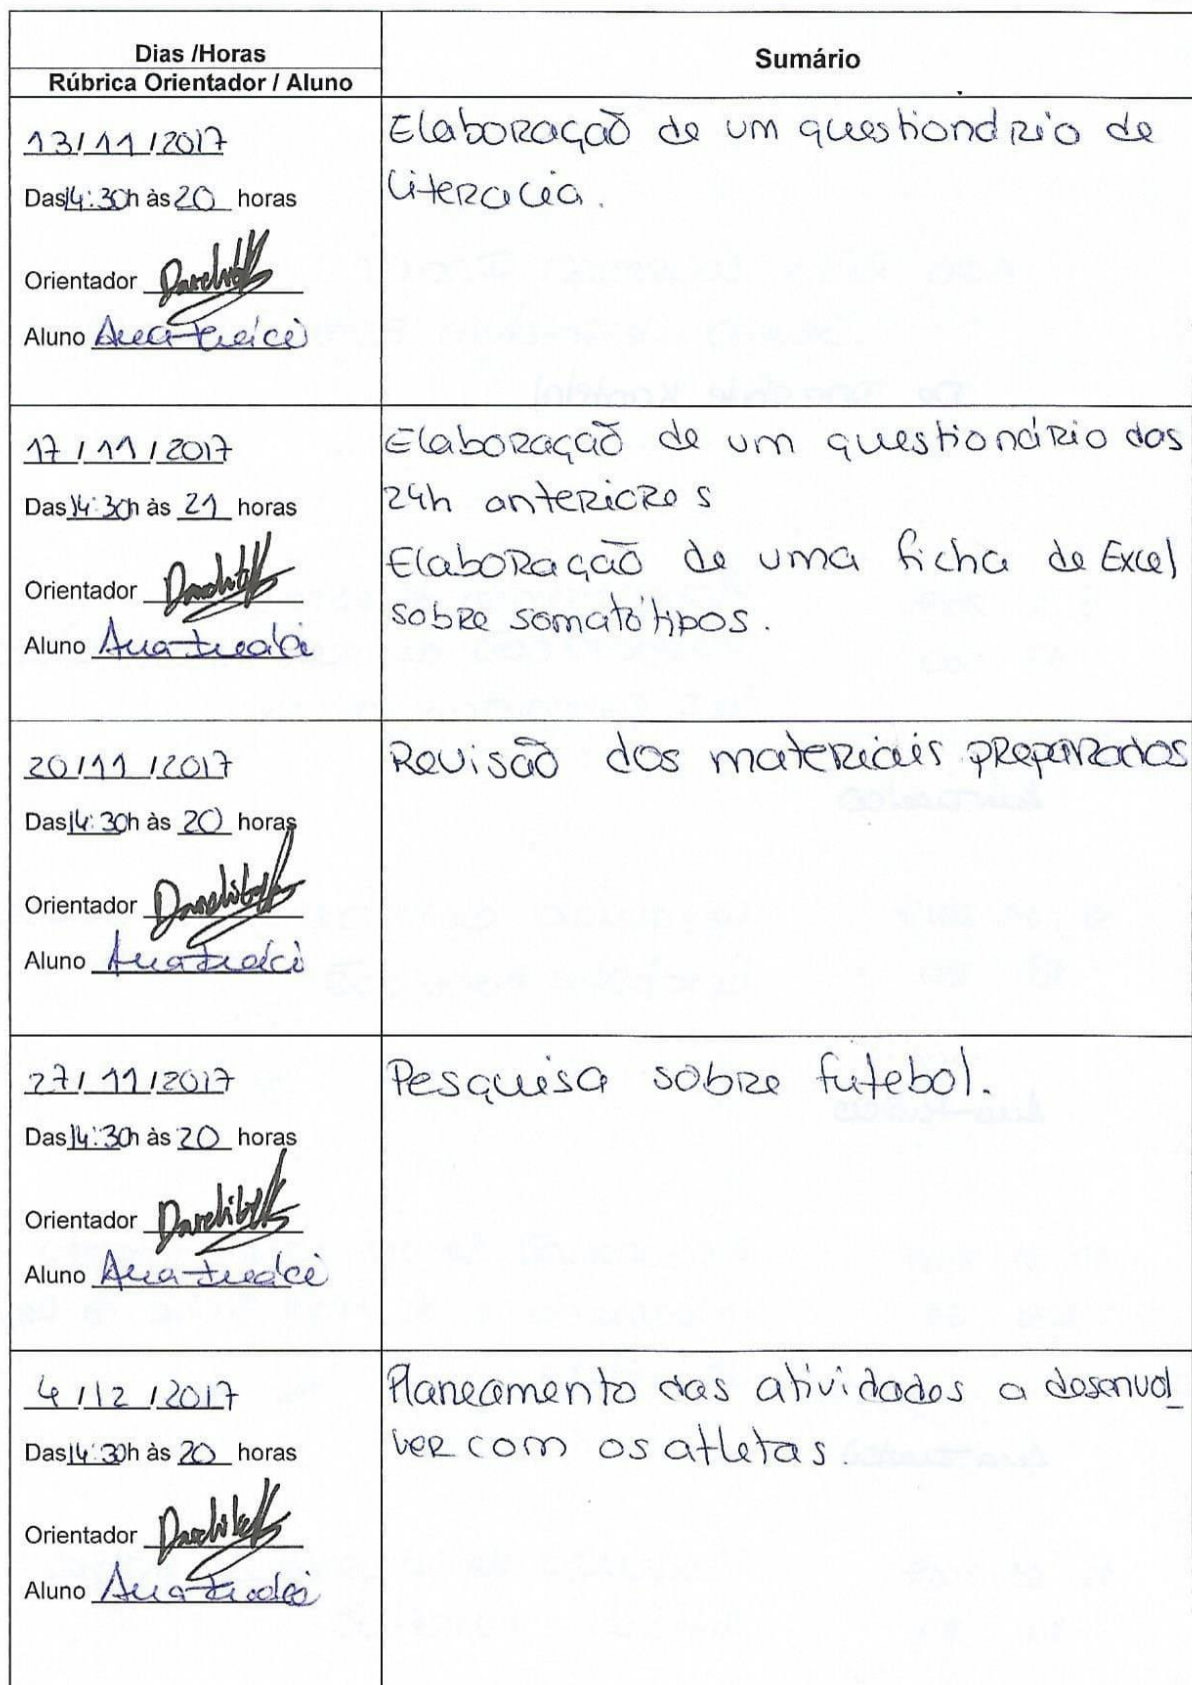 Dias /Horas
Rúbrica Orientador / Aluno
Sumário
13/11/2017
Das 14:30h às 20 horas
Orientador
Aluno
Elaboração de um questionário de
literacia.
17/11/2017
Das 14:30h às 21 horas
Orientador
Aluno
Elaboração de um questionário das
24h anteriores
Elaboração de uma ficha de Excel
sobre somatótipos.
20/11/2017
Das 14:30h às 20 horas
Orientador
Aluno
Revisão dos materiais preparados
27/11/2017
Das 14:30h às 20 horas
Orientador
Aluno
Pesquisa sobre futebol.
4/12/2017
Das 14:30h às 20 horas
Orientador
Aluno
Planeamento das atividades a desenvol_
ver com os atletas.